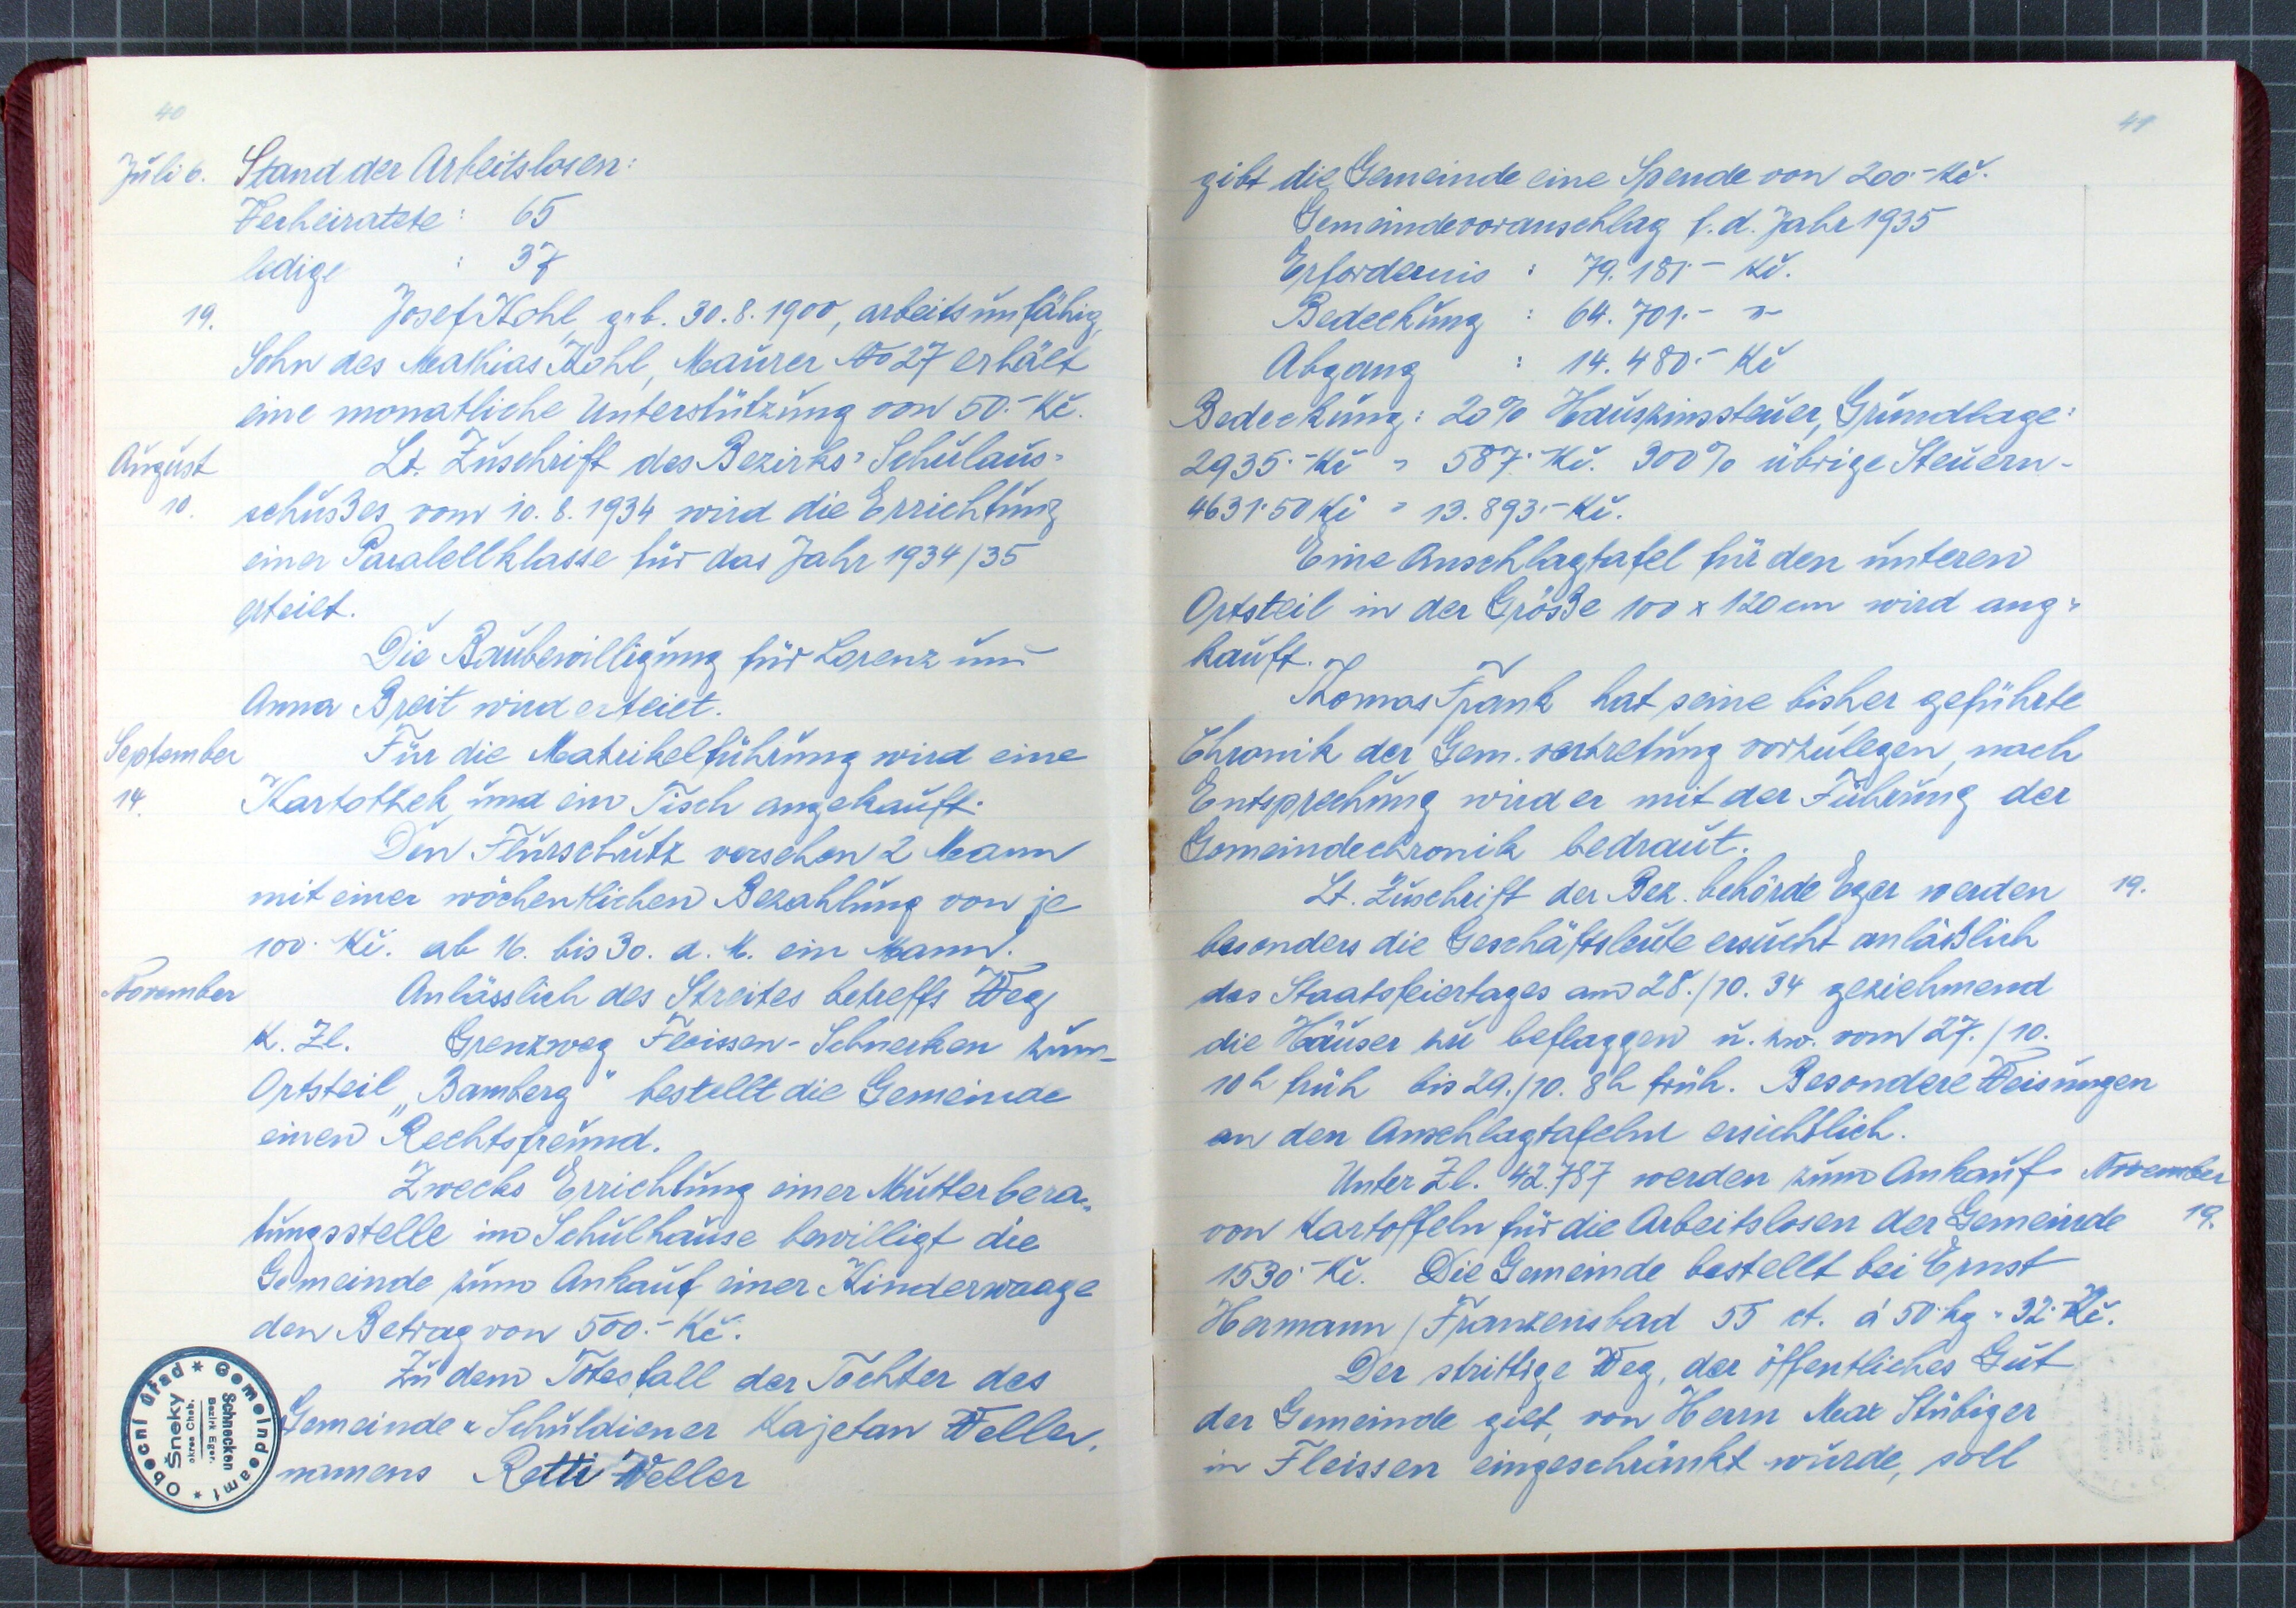 40
Juli 6. Stand der Arbeitslosen:
Verheiratete : 65
ledige : 37
19. Josef Kohl, geb. 30.8.1900, arbeitsunfähig,
Sohn des Mathias Kohl, Maurer No 27 erhält
eine monatliche Unterstützung von 50.- Kč.
August Lt. Zuschrift des Bezirks-Schulaus-
10. schußes vom 10.8.1934 wird die Errichtung
einer Paralellklasse für das Jahr 1934/35
erteilt.
Die Baubewilligung für Lorenz und
Anna Breit wird erteilt.
September Für die Matrikelführung wird eine
14. Kartothek und ein Tisch angekauft.
Den Flurschutz versehen 2 Mann
mit einer wöchentlichen Bezahlung von je
100.- Kč. ab 16. bis 30. d. M. ein Mann.
November Anlässlich des Streites betreffs Weg
K. Zl. Grenzweg Fleissen-Schnecken zum
Ortsteil „Bamberg" bestellt die Gemeinde
einen Rechtsfreund.
Zwecks Errichtung einer Mutterbera-
tungsstelle im Schulhause bewilligt die
Gemeinde zum Ankauf einer Kinderwaage
den Betrag von 500.- Kč.
Zu dem Totesfall der Tochter des
Gemeinde & Schuldiener Kajetan Weller,
namens Retti Weller
Obecní úřad * Gemeindeamt *
Šneky
okres Cheb.
Schnecken
Bezirk Eger.
41
gibt die Gemeinde eine Spende von 200.- Kč.
Gemeindevoranschlag f. d. Jahr 1935
Erfordernis : 79.181.- Kč.
Bedeckung : 64.701.- "-
Abgang : 14.480.- Kč
Bedeckung: 20% Hauszinssteuer, Grundlage:
2935.- Kč = 587.- Kč. 300% übrige Steuern-
4631.50 Kč = 13.893.- Kč.
Eine Anschlagtafel für den unteren
Ortsteil in der Größe 100 x 120 cm wird ang-
kauft.
Thomas Frank hat seine bisher geführte
Chronik der Gem. vertretung vorzulegen, nach
Entsprechung wird er mit der Führung der
Gemeindechronik bedraut.
Lt. Zuschrift der Bez. behörde Eger werden 19.
besonders die Geschäftsleute ersucht anläßlich
des Staatsfeiertages am 28./10. 34 geziehmend
die Häuser zu beflaggen u. zw. vom 27./10.
10 h früh bis 29./10. 8 h früh. Besondere Weisungen
an den Anschlagtafeln ersichtlich.
Unter Zl. 42.787 werden zum Ankauf November
von Kartoffeln für die Arbeitslosen der Gemeinde 19.
1530.- Kč. Die Gemeinde bestellt bei Ernst
Hermann / Franzensbad 55 ct. á 50 kg = 32.- Kč.
Der strittige Weg, der öffentliches Gut
der Gemeinde gilt, von Herrn Max Stübiger
in Fleissen eingeschränkt wurde, soll